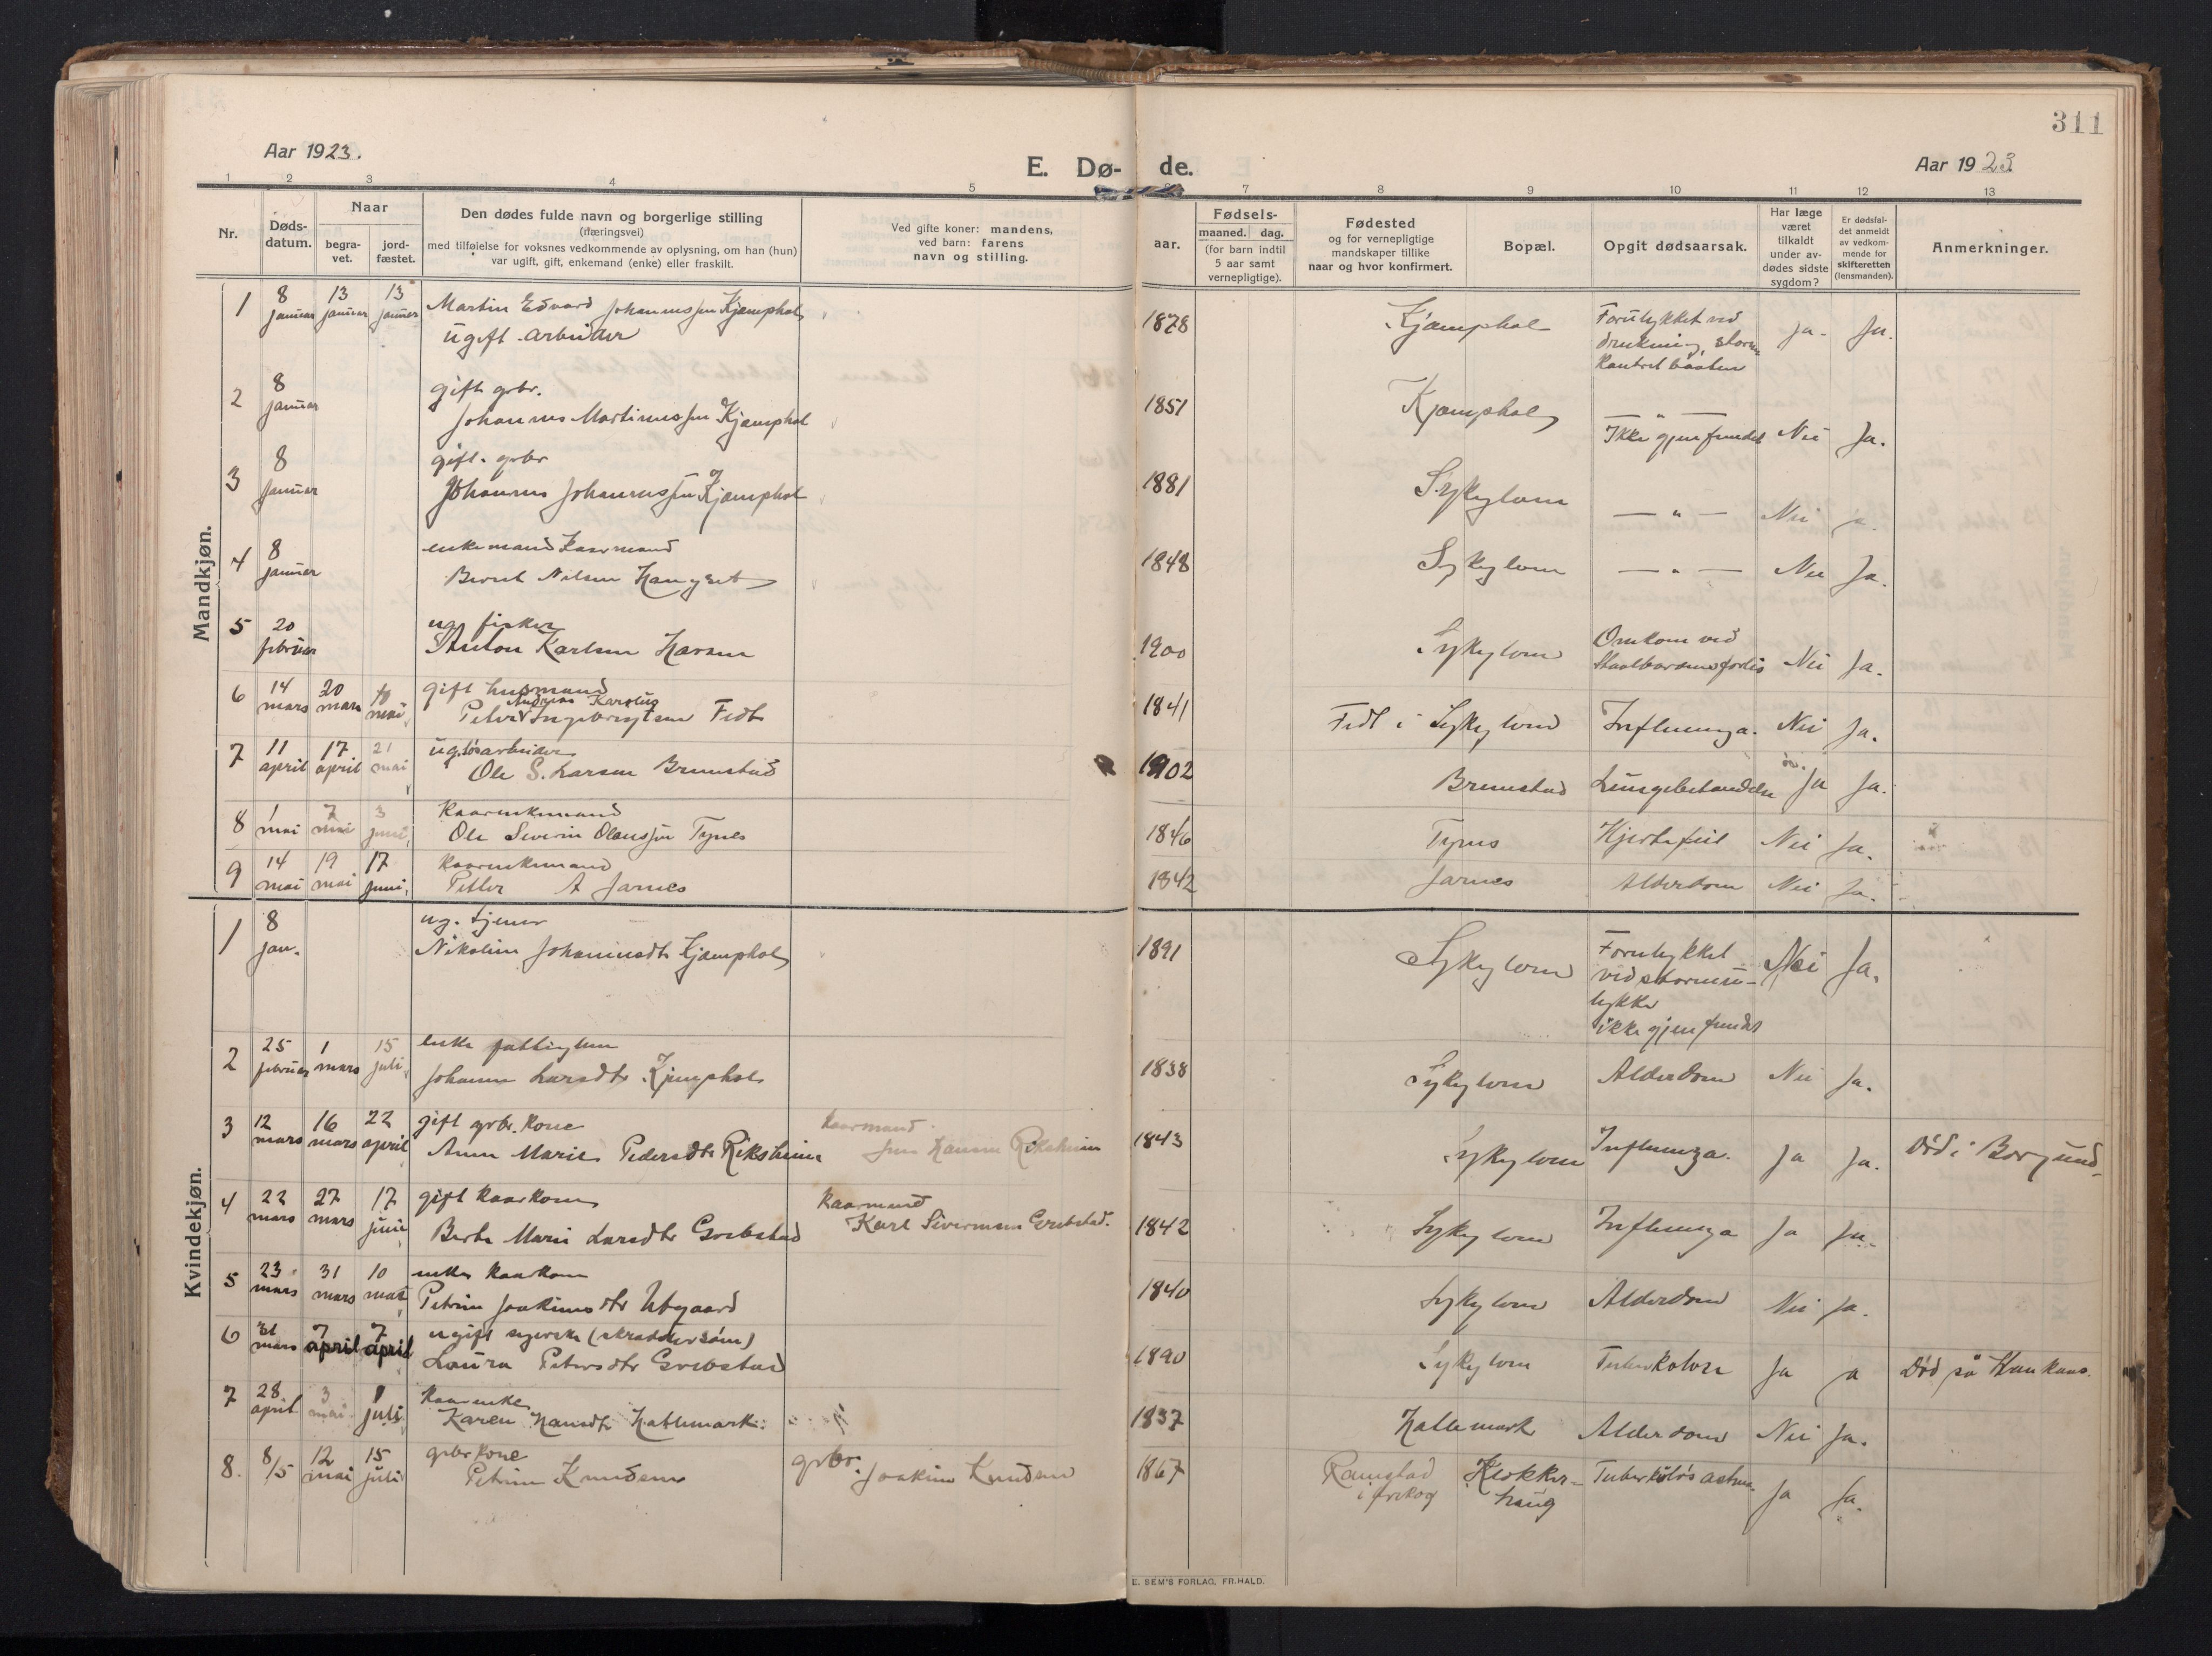 311
Aar 1923.
E. Dø- de.
Aar 1923
1 2 3 4 5 7 8 9 10 11 12 13
Nr.
Døds-
datum.
Naar
begra-
vet.
jord-
fæstet.
Den dødes fulde navn og borgerlige stilling
(næringsvei)
med tilføielse for voksnes vedkommende av oplysning, om han (hun)
var ugift, gift, enkemand (enke) eller fraskilt.
Ved gifte koner: mandens,
ved barn: farens
navn og stilling.
aar.
Fødsels-
maaned. dag.
(for barn indtil
5 aar samt
vernepligtige).
Fødested
og for vernepligtige
mandskaper tillike
naar og hvor konfirmert.
Bopæl.
Opgit dødsaarsak.
Har læge
været
tilkaldt
under av-
dødes sidste
sygdom?
Er dødsfal-
det anmeldt
av vedkom-
mende for
skifteretten
(lensmanden).
Anmerkninger.
Mandkjøn.
1 8 januar 13 januar 13 januar Martin Edvard Johannessen Kjæmphol 1878 Kjæmphol Forulykket ved Ja. Ja.
ugift arbeider drukning, storm
kantret baaten
2 8 januar gift grbr. 1851 Kjæmphol — " —
Johannes Martinussen Kjæmphol Ikke gjenfundet Nei Ja.
3 8 januar gift. grbr 1881 Sykylven — " — Nei Ja.
Johannes Johannessen Kjæmphol
4 8 januar enkemand kaarmand 1848 Sykylven — " — Nei Ja.
Bernt Nilsen Haugset
5 20 februar ug. fisker 1900 Sykylven Omkom ved
Anton Karlsen Hansen Nei Ja.
6 14 mars 20 mars 10 mai gift husmand 1841 Fedt i Sykylven Influenza. Nei Ja.
Andreas Karolus
Peter Ingebrigtsen Fedt
7 11 april 17 april 21 mai ug. løsarbeider 1902 Brunstad Lungebetændelse Ja Ja.
Ole S. Larsen Brunstad
8 1 mai 7 mai 3 juni Kaarenkemand 1846 Tynes Hjertefeil Nei Ja.
Ole Severin Olaussen Tynes
9 14 mai 19 mai 17 juni Kaarenkemand 1842 Jarnes Alderdom Nei Ja.
Petter A Jarnes
Kvindekjøn.
1 8 jan. ug. tjener 1891 Sykylven Forulykket Nei Ja.
Nikoline Johannesdtr Kjæmphol ved stormu-
lykke
ikke gjenfundet
2 25 februar 1 mars 15 juli enke fattiglem 1838 Sykylven Alderdom Nei Ja.
Johanne Larsdtr Kjemphol
3 12 mars 16 mars 22 april gift grbr. kone kaarmand 1843 Sykylven Influenza. Ja Ja. Død i Borgund.
Anne Marie Pedersdtr Riksheim Jens Hansen Riksheim
4 22 mars 27 mars 17 juni gift kaarkone kaarmand 1842 Sykylven Influenza Ja Ja.
Berte Marie Larsdtr Grebstad Karl Sivertsen Grebstad.
5 23 mars 31 mars 10 mai enke kaarkone 1840 Sykylven Alderdom Nei Ja.
Petrine Joakimsdtr Utgaard
6 31 mars 7 april 7 april ugift syerske (skræddersøm) 1890 Sykylven Tuberkolose Ja Ja Død på Haukaas.
Laura Petersdtr Grebstad
7 28 april 3 mai 1 juli Kaarenke 1837 Hattemark Alderdom Nei Ja.
Karen Hansdtr Hattemark
8. 8/5 12 mai 15 juli grbr kone grbr. 1867 Ramstad Klokker- Tuberkuløs astma Ja Ja.
Petrine Knudsen Joakim Knudsen i Ørskog haug
E. SEM'S FORLAG, FR.HALD.